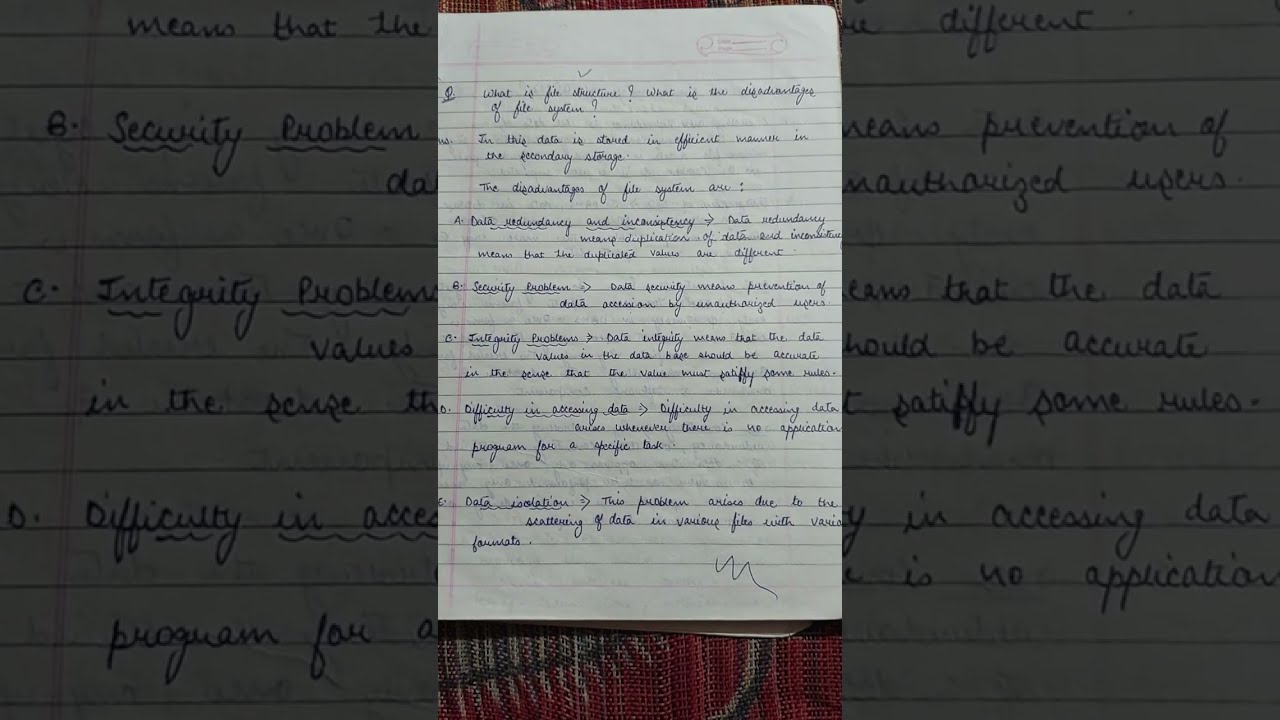 Q. What is file structure? What is the disadvantages
of file system?
ns. In this data is stored in efficient manner in
the secondary storage.
The disadvantages of file system are:
A. Data redundancy and inconsistency => Data redundancy
means duplication of data and inconsistenc
means that the duplicated values are different
B. Security Problem => Data security means prevention of
data accession by unauthorized users.
C. Integrity Problems => Data integrity means that the data
values in the data base should be accurate
in the sense that the value must satisfy some rules.
D. Difficulty in accessing data => Difficulty in accessing data
arises whenever there is no application
program for a specific task.
E. Data isolation => This problem arises due to the
scattering of data in various files with vario
formats.